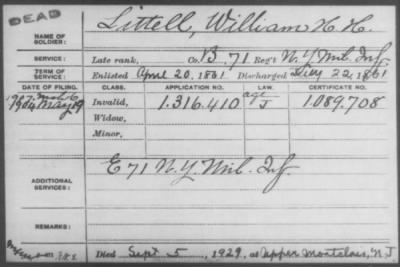 DEAD
NAME OF SOLDIER: Littell, William H. H.
SERVICE: Late rank, Co. B, 71 Reg't N.Y. Mil. Inf.
TERM OF SERVICE: Enlisted April 20, 1861 Discharged July 22, 1861
DATE OF FILING. CLASS. APPLICATION NO. LAW. CERTIFICATE NO.
1904 May 19 Invalid, 1.316.410 age J 1.089.708
Widow,
Minor,
ADDITIONAL SERVICES: E 71 N.Y. Mil. Inf.
REMARKS:
Died Sept 5, 1929, at Upper Montclair, N.J.